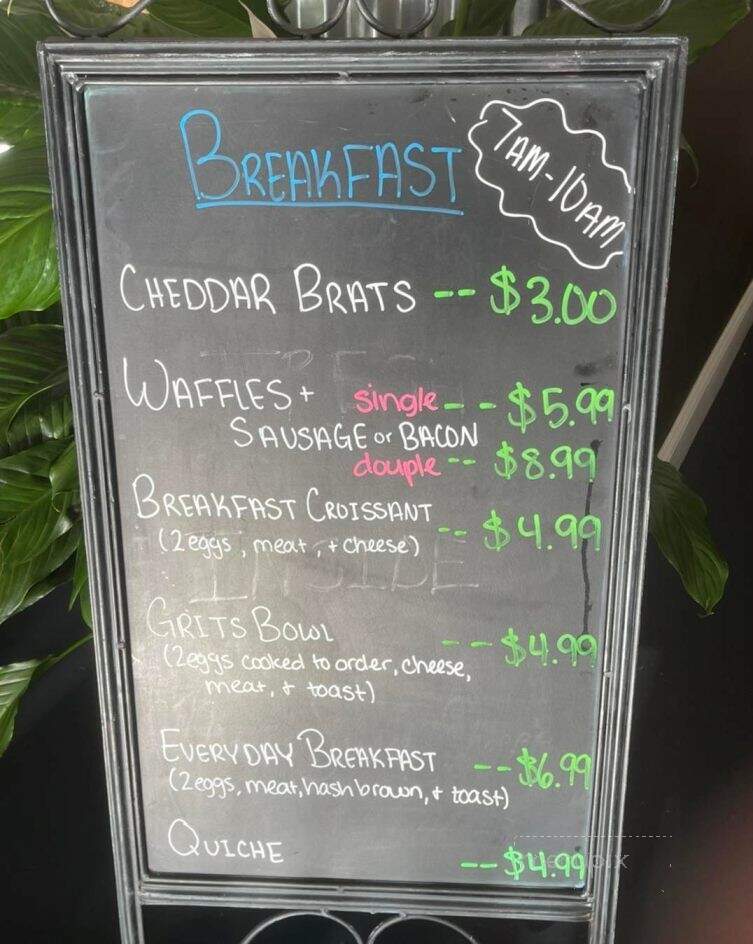 BREAKFAST 7AM-10AM
CHEDDAR BRATS -- $3.00
WAFFLES + single -- $5.99
SAUSAGE or BACON
douple -- $8.99
BREAKFAST CROISSANT
(2eggs, meat, + cheese) -- $4.99
GRITS BOWL -- $4.99
(2eggs cooked to order, cheese,
meat, + toast)
EVERYDAY BREAKFAST -- $6.99
(2eggs, meat, hashbrown, + toast)
QUICHE -- $4.99